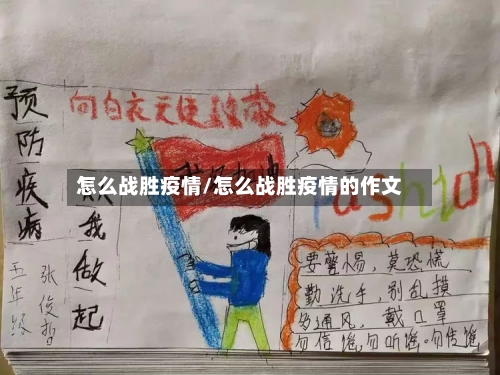 向白衣天使致敬
预防疾病
我做起
五年级
张俊哲
怎么战胜疫情/怎么战胜疫情的作文
要警惕，莫恐慌
勤洗手，别乱摸
多通风，戴口罩
勿信谣，勿听谣，勿传谣